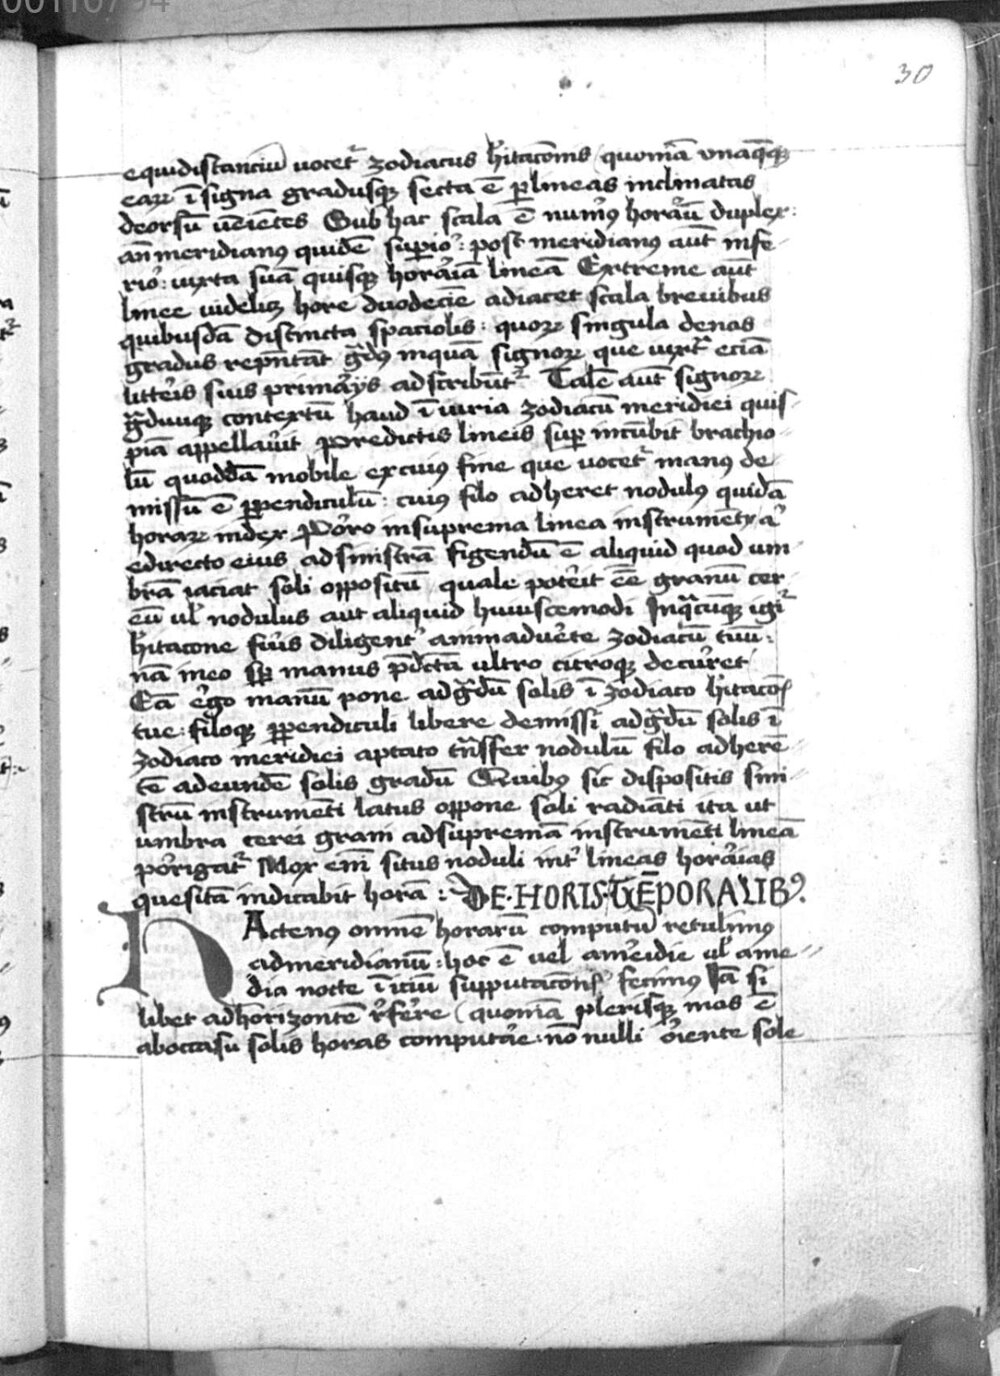 00110794
30
equidistanciū vocet᷑ zodiacus h̄itacōnis (quoniā vnaq̄q̨
earꝝ ī signa gradusq̨ secta ē ꝑ lineas inclinatas
deorsū vēiētes Sub hac scala ē num̄us horaꝝ duplex:
añ meridianus quidē supio᷑: post meridianus aūt infe
rio᷑: iuxta suā quisq̨ horariā lineā Extreme aūt
linee videlic̨ hore duodecīe adiacet scala brevibus
quibusdā distincta spaciolis: quorꝝ singula denos
gradus rep̄ntāt g̃dus inquā signorꝝ que iuxt᷑ eciā
litteris suis primarijs adscribūt᷑ Talē aūt signorꝝ
g̃duumq̨ contextū haud īiuria zodiacū meridiei quis
piā appellaverit Predictis lineis suꝑ incūbit brachio
lū quoddā mobile ex cuius fine que vocet᷑ manus de
missū ē ꝑpendiculū: cuius filo adheret nodulus quidā
horarꝝ index Porro in suprema linea instrumenti
edirecto eius ad sinistrā figendū ē aliquid quod um
brā iaciat soli oppositū quale poterit ēē granū cer
eū ul᷑ nodulus aut aliquid huiuscemodi Inq̄cūq̨ igi᷑
h̄itacone fueris diligent᷑ animadverte zodiacū tuū:
nā in eo sꝑ manus p̄dcta ultro citroq̨ decurret
Eā ergo manū pone ad g̃dū solis ī zodiaco h̄itacōis
tue: filoq̨ ꝑpendiculi libere demissi ad g̃dū solis ī
zodiaco meridiei aptato trāsfer nodulū filo adherē
tē ad eundē solis gradū Quibus sic dispositis sini
strū instrumēti latus oppone soli radiāti ita ut
umbra cerei grani ad supremā instrumēti lineā
porrigat᷑ Mox eni situs noduli int᷑ lineas horarias
quesitā indicabit horā: DE·HORIS·TĒPORALIB⁹.
HActenus omnē horarū computū retulimus
ad meridianū: hoc ē vel a meridie ul᷑ a me
dia nocte īiciū supputacōnis fecimus Iā si
libet ad horizontē referre (quoniā plerisq̨ mos ē
ab occasu solis horas computare: nōnulli oriente sole